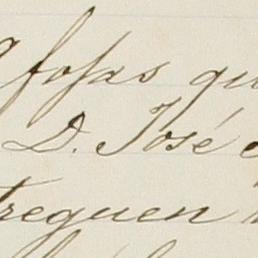 fosas qu
D. José
treguen